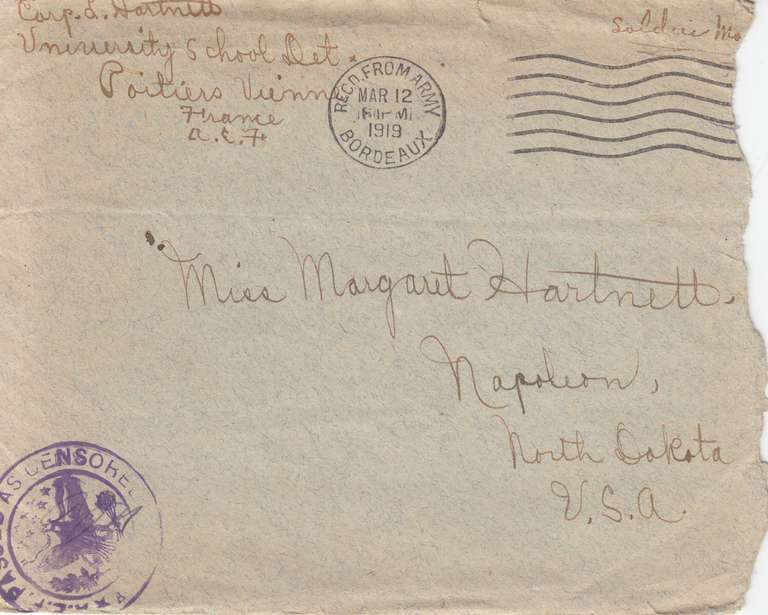 Corp. L. Hartnett
University School Det.
Poitiers Vienn
France
A.E.F.
Soldier Ma
RECD. FROM ARMY
MAR 12
1919
BORDEAUX
Miss Margaret Hartnett.
Napoleon,
North Dakota
U.S.A.
A.E.F. PASSED AS CENSORED